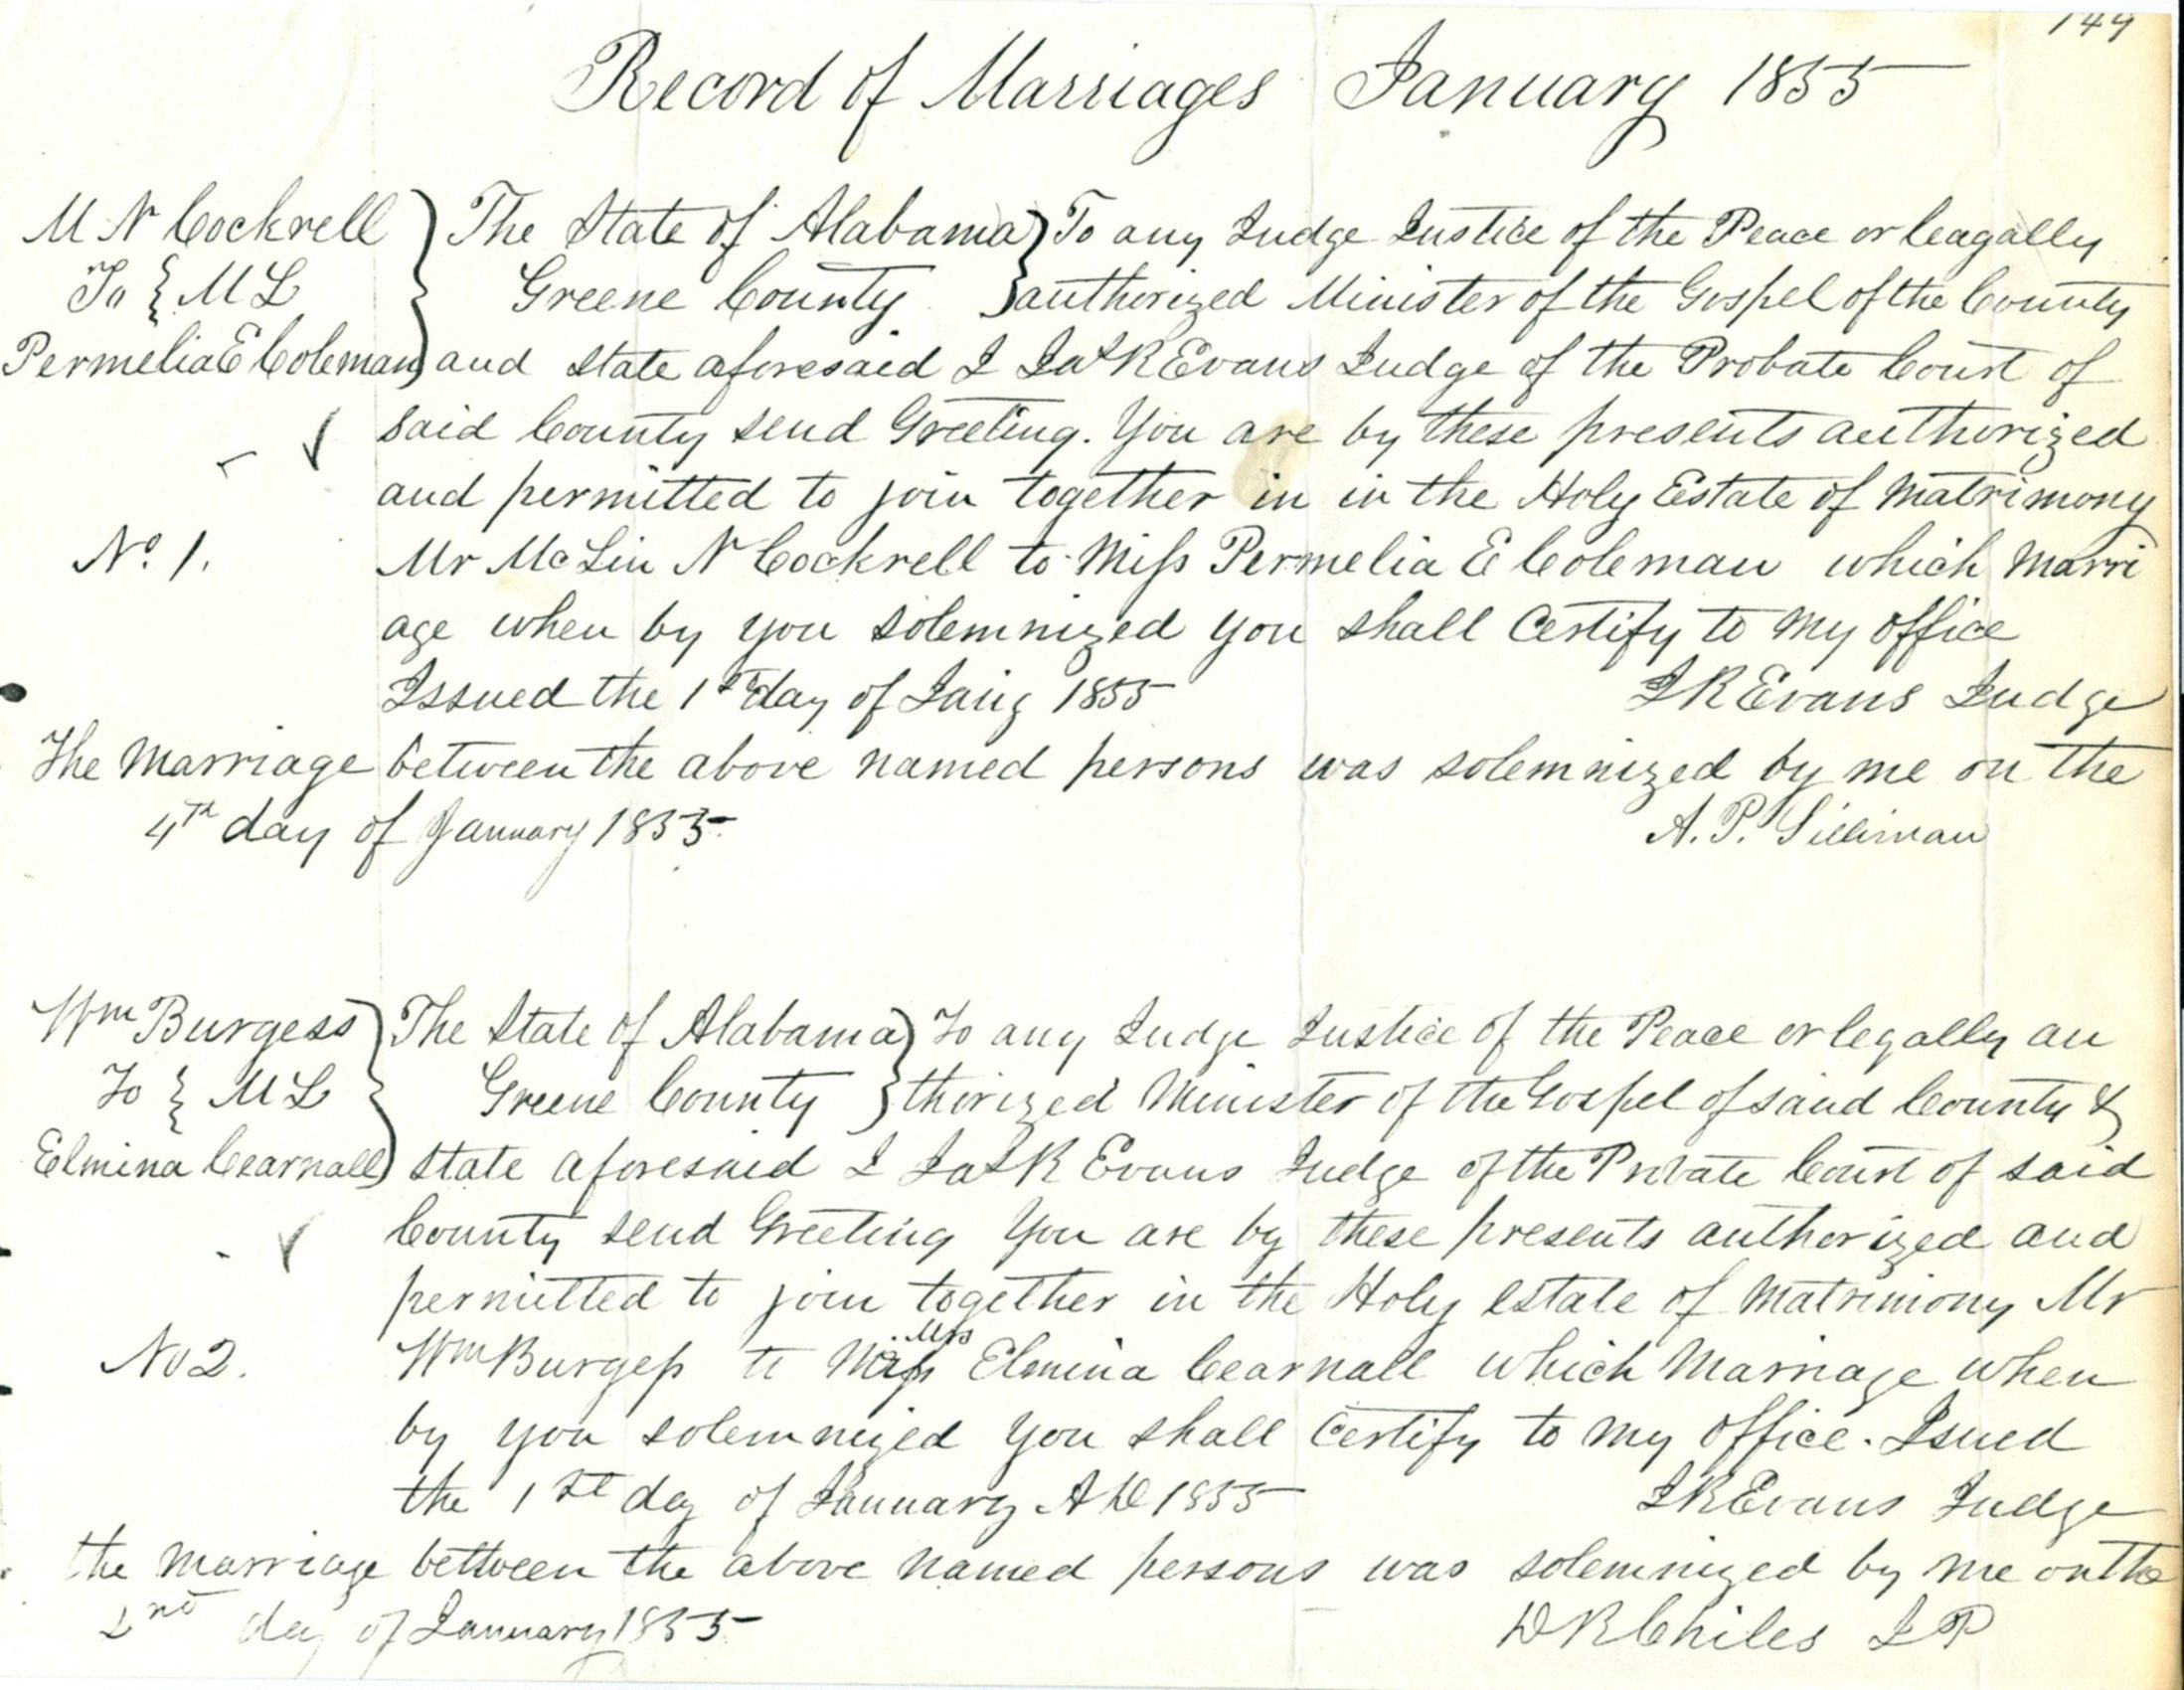 149
Record of Marriages January 1855
M N Cockrell } The State of Alabama } To any Judge Justice of the Peace or leagally
To { M L } Greene County } authorized Minister of the Gospel of the County
Permelia E Coleman } and State aforesaid I Jas R Evans Judge of the Probate Court of
said County send Greeting. You are by these presents authorized
and permitted to join together in in the Holy Estate of Matrimony
No. 1. Mr McLin N Cockrell to Miss Permelia E Coleman which Marri
age when by you solemnized you shall Certify to my office
Issued the 1st day of Jany 1855 J R Evans Judge
The Marriage between the above named persons was solemnized by me on the
4th day of January 1855. A. P. Silliman
Wm Burgess } The State of Alabama } To any Judge Justice of the Peace or legally au
To { M L } Greene County } thorized Minister of the Gospel of said County &
Elmina Cearnall } State aforesaid I Jas R Evans Judge of the Probate Court of said
County send Greeting You are by these presents authorized and
permitted to join together in the Holy estate of Matrimony Mr
Mrs
No 2. Wm Burgess to Miss Elmina Cearnall which Marriage when
by you solemnized you shall Certify to my office. Issued
the 1st day of January AD 1855 J R Evans Judge
the Marriage bettween the above named persons was solemnized by me on the
2nd day of January 1855 D R Chiles J P